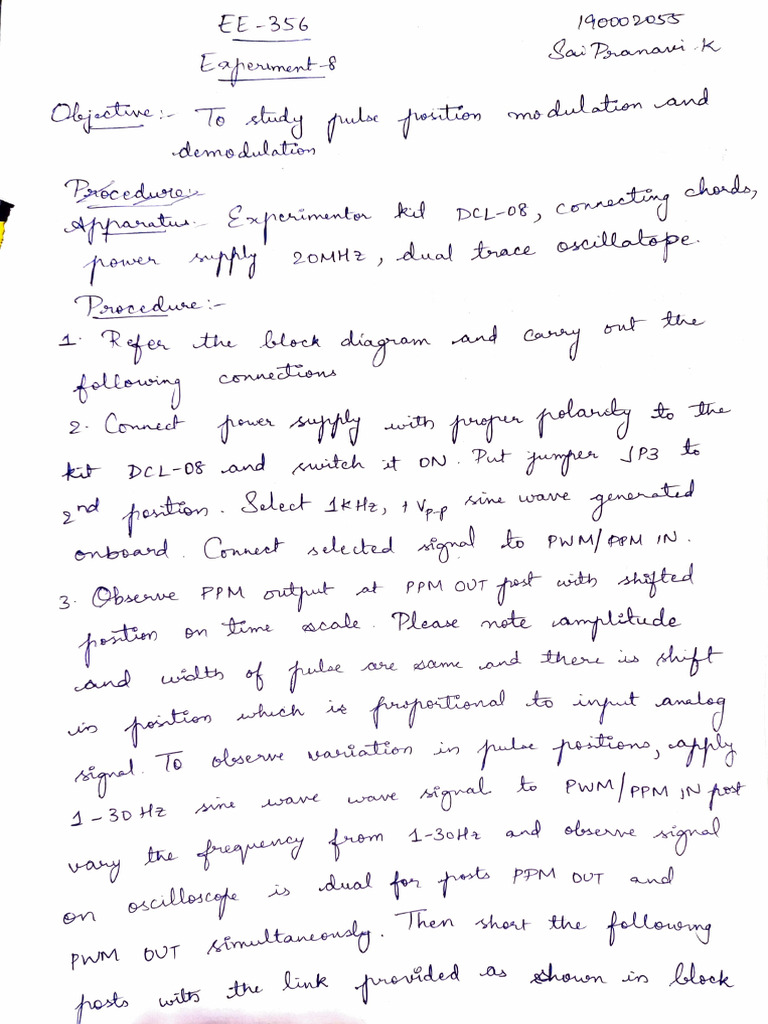 EE-356
190002055
Sai Pranavi. K
Experiment-8
Objective:- To study pulse position modulation and
demodulation
Procedure:-
Apparatus:- Experimentor kit DCL-08, connecting chords,
power supply 20MHz, dual trace oscillatope.
Procedure:-
1. Refer the block diagram and carry out the
following connections
2. Connect power supply with proper polarity to the
kit DCL-08 and switch it ON. Put jumper JP3 to
2nd position. Select 1KHz, 1 Vp-p sine wave generated
onboard. Connect selected signal to PWM/PPM IN.
3. Observe PPM output at PPM OUT post with shifted
position on time scale. Please note amplitude
and width of pulse are same and there is shift
in position which is proportional to input analog
signal. To observe variation in pulse positions, apply
1-30Hz sine wave wave signal to PWM/PPM IN post
vary the frequency from 1-30Hz and observe signal
on oscilloscope is dual for posts PPM OUT and
PWM OUT simultaneously. Then short the following
posts with the link provided as shown in block